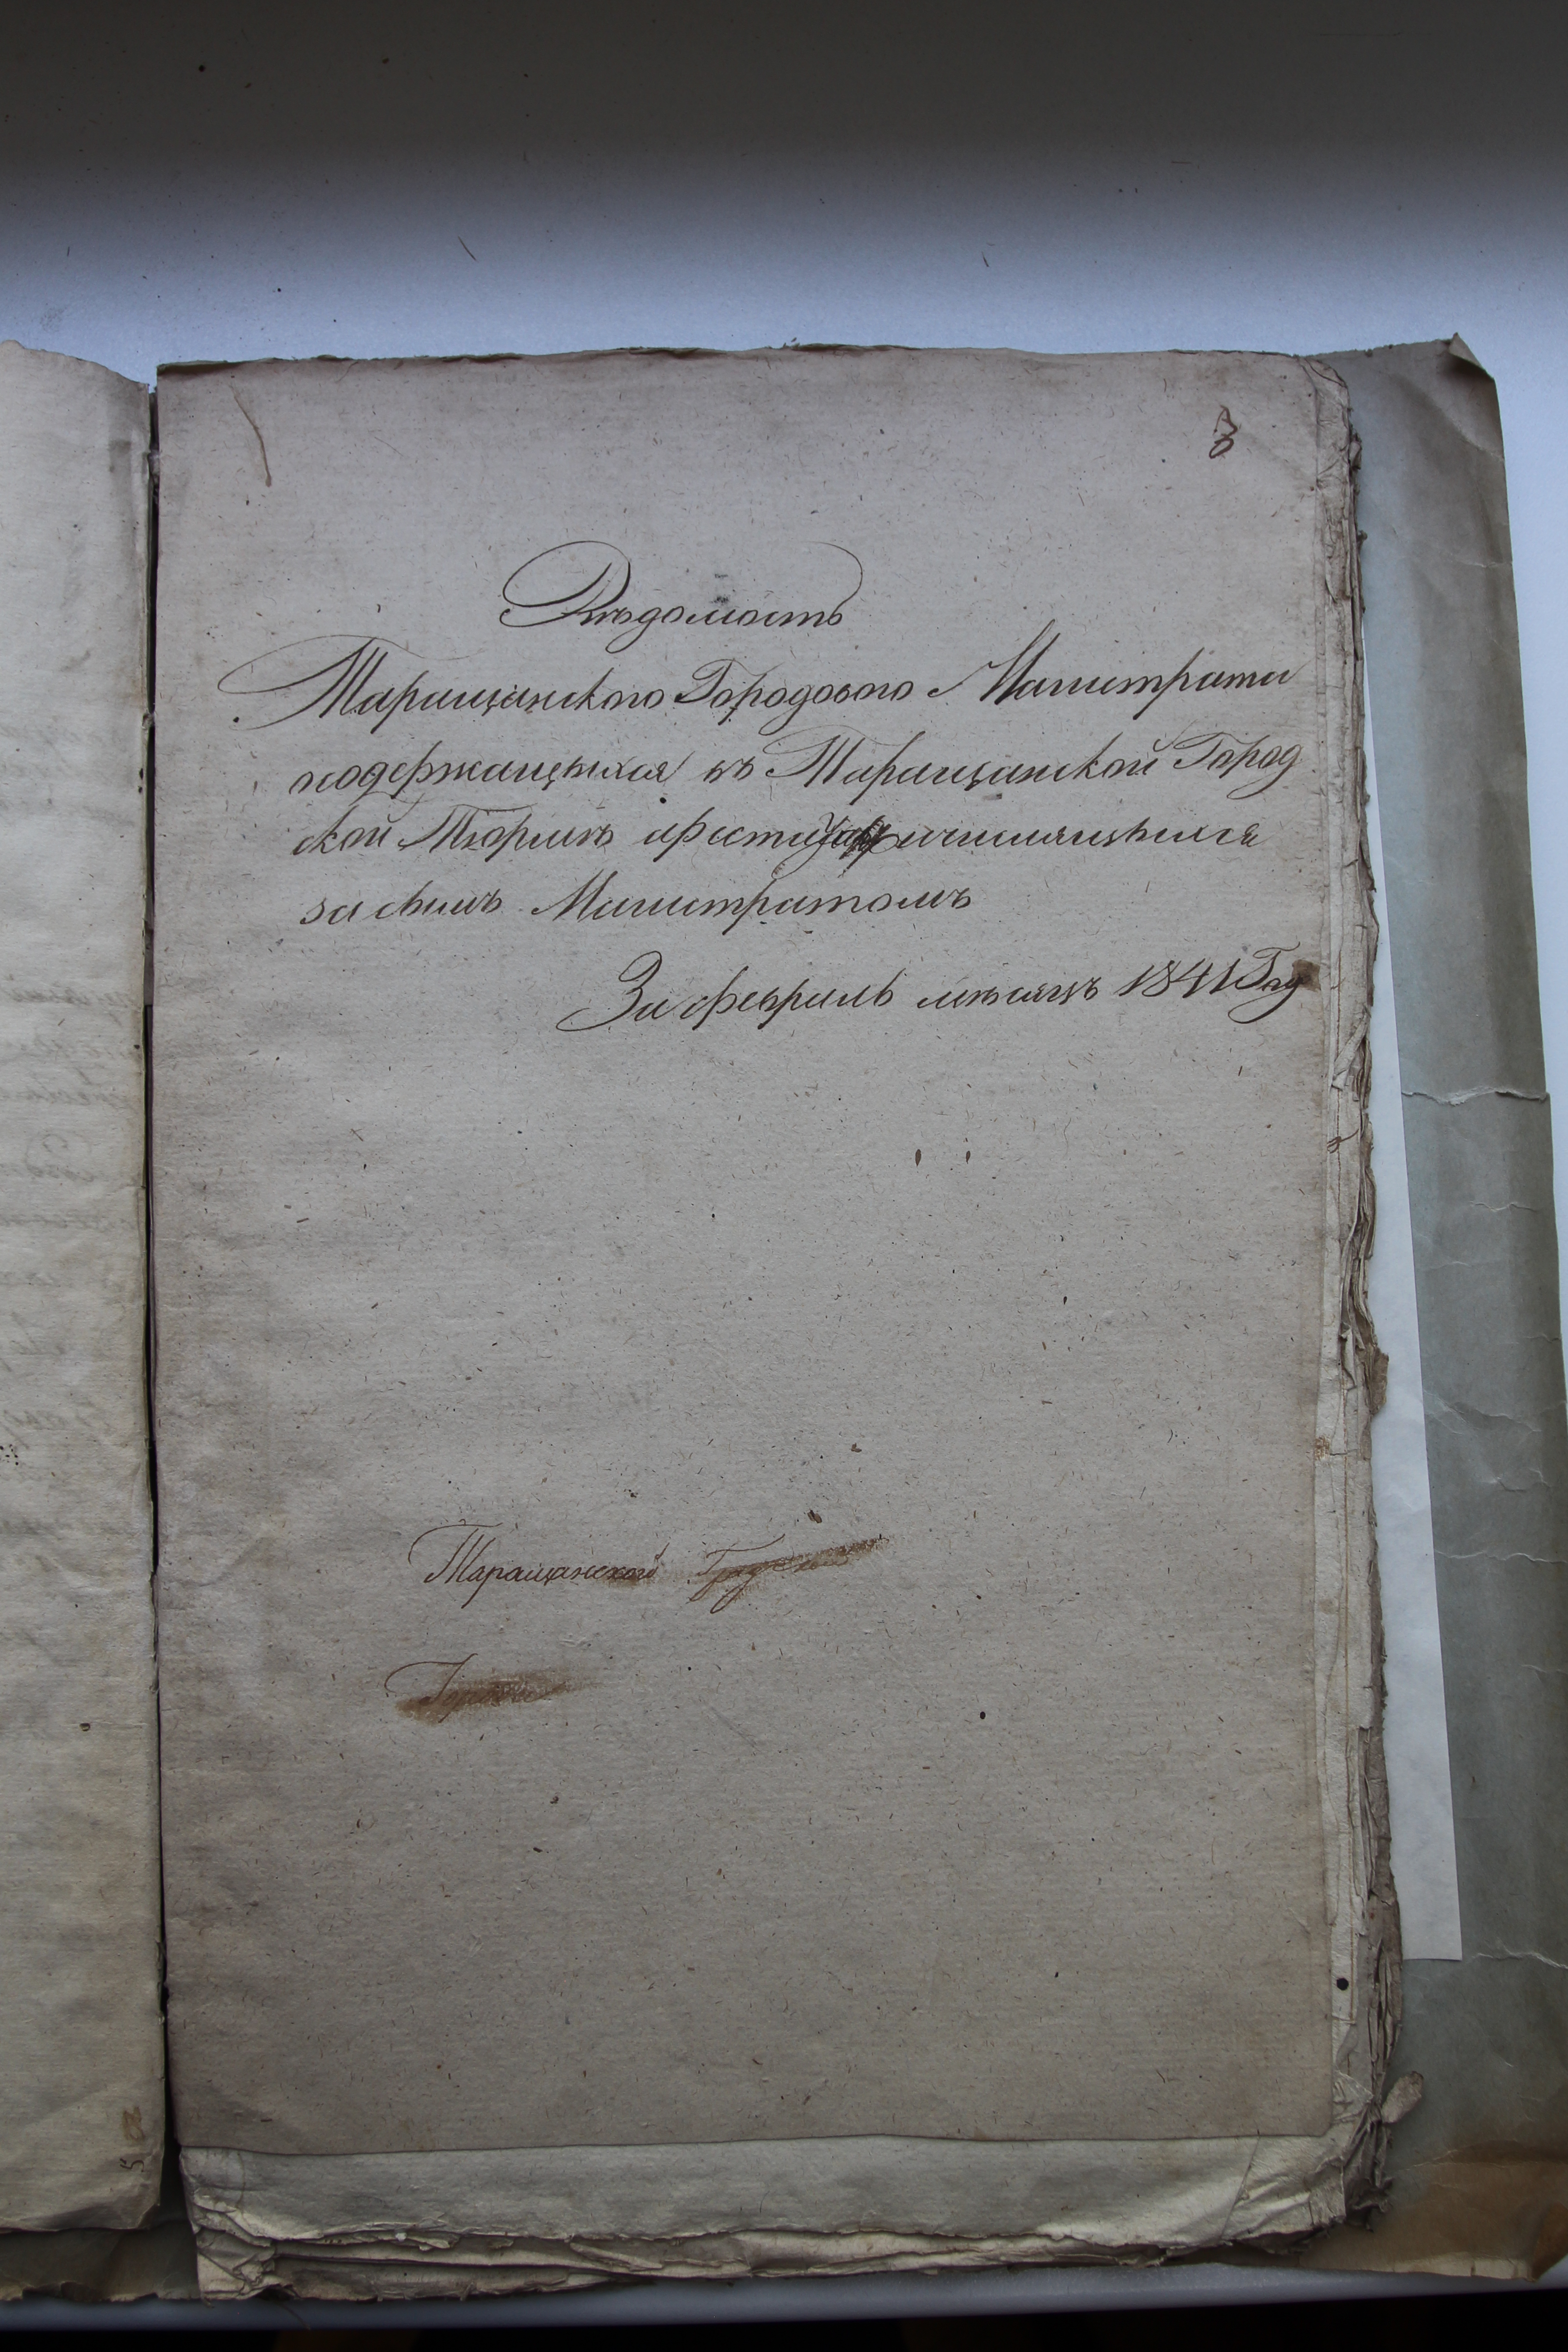 8
Вѣдомость
Таращанского Городового Магистрата
о содержащихся въ Таращанской Город
ской Тюрмѣ арестантах числящихся
за симъ Магистратомъ
За февраль мѣсяцъ 1841 Году
Таращанской Градской